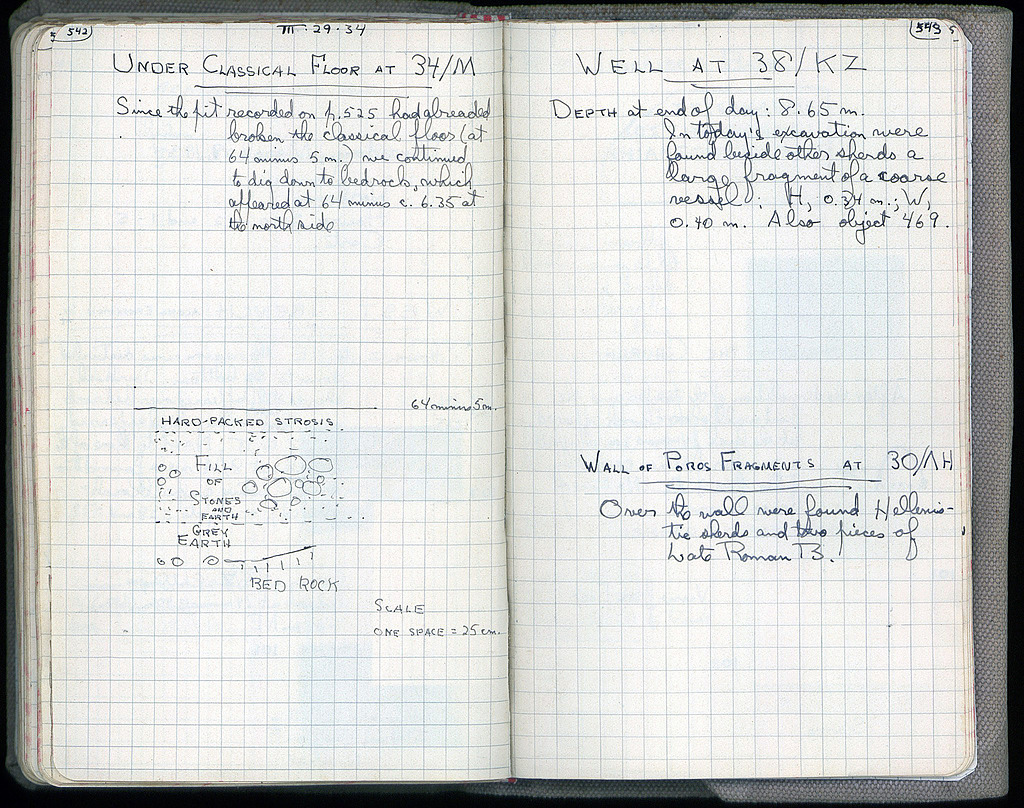 542
III · 29 · 34
UNDER CLASSICAL FLOOR AT 34/M
Since the pit recorded on p. 525 had already
broken the classical floor (at
64 minus 5 m.) we continued
to dig down to bedrock, which
appeared at 64 minus c. 6.35 at
the north side
64 minus 5 m.
HARD-PACKED STROSIS
FILL
OF
STONES
AND
EARTH
GREY
EARTH
BED ROCK
SCALE
ONE SPACE = 25 cm.
543
WELL AT 38/KZ
DEPTH at end of day : 8.65 m.
In today's excavation were
found beside other sherds a
large fragment of a coarse
vessel : H, 0.34 m.; W,
0.40 m. Also object 469.
WALL OF POROS FRAGMENTS AT 30/ΛH
Over the wall were found Hellenis-
tic sherds and two pieces of
Late Roman B.